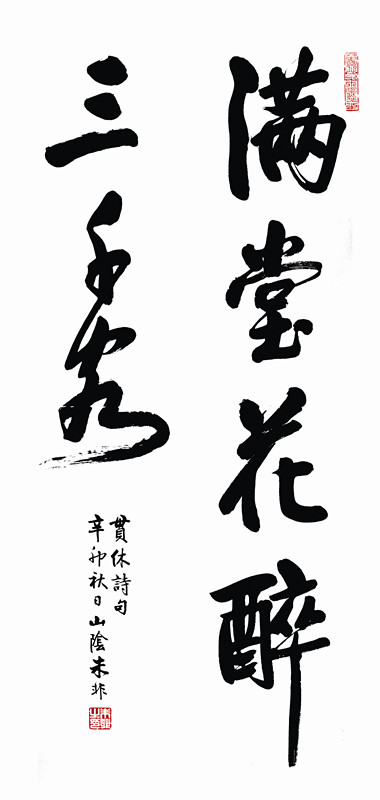 满堂花醉
三千客
贯休詩句
辛卯秋日山陰朱非